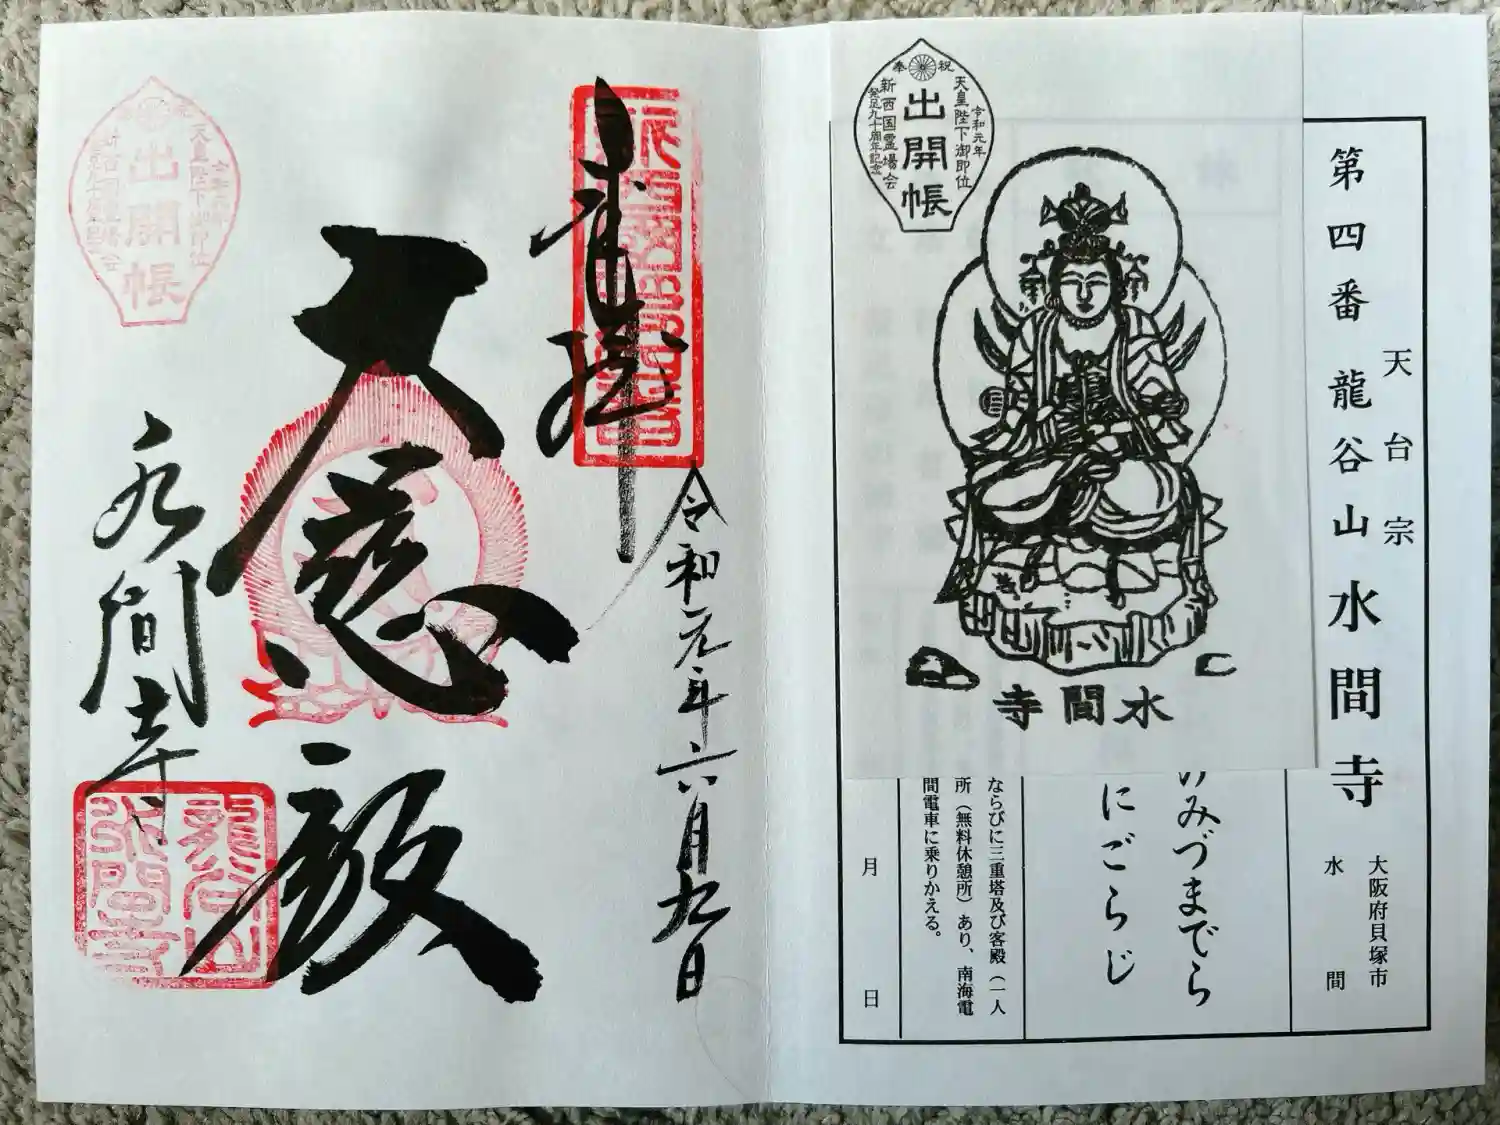 奉拝
令和元年六月九日
大慈殿
水間寺
新西国第四番霊場
龍谷山水間寺
奉祝
天皇陛下御即位
令和元年
出開帳
新西国霊場会
発足九十周年記念
奉祝
令和元年
天皇陛下御即位
出開帳
新西国霊場会
発足九十周年記念
水間寺
天台宗
第四番龍谷山水間寺
大阪府貝塚市
水間
みづまでら
にごらじ
ならびに三重塔及び客殿（一人
所（無料休憩所）あり、南海電
間電車に乗りかえる。
月 日